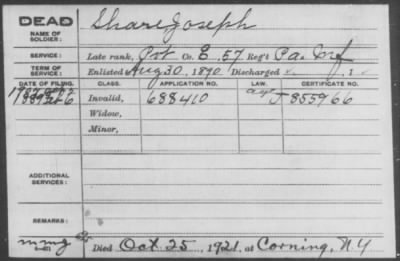 DEAD
NAME OF SOLDIER: Share Joseph
SERVICE: Late rank, Pvt Co. E, 57 Reg't Pa. Inf
TERM OF SERVICE: Enlisted Aug 30, 1870 Discharged , 1
DATE OF FILING. CLASS. APPLICATION NO. LAW. CERTIFICATE NO.
Invalid, 688410 J 855966
Widow,
Minor,
ADDITIONAL SERVICES:
REMARKS:
Died Oct 25, 1921, at Corning, N.Y